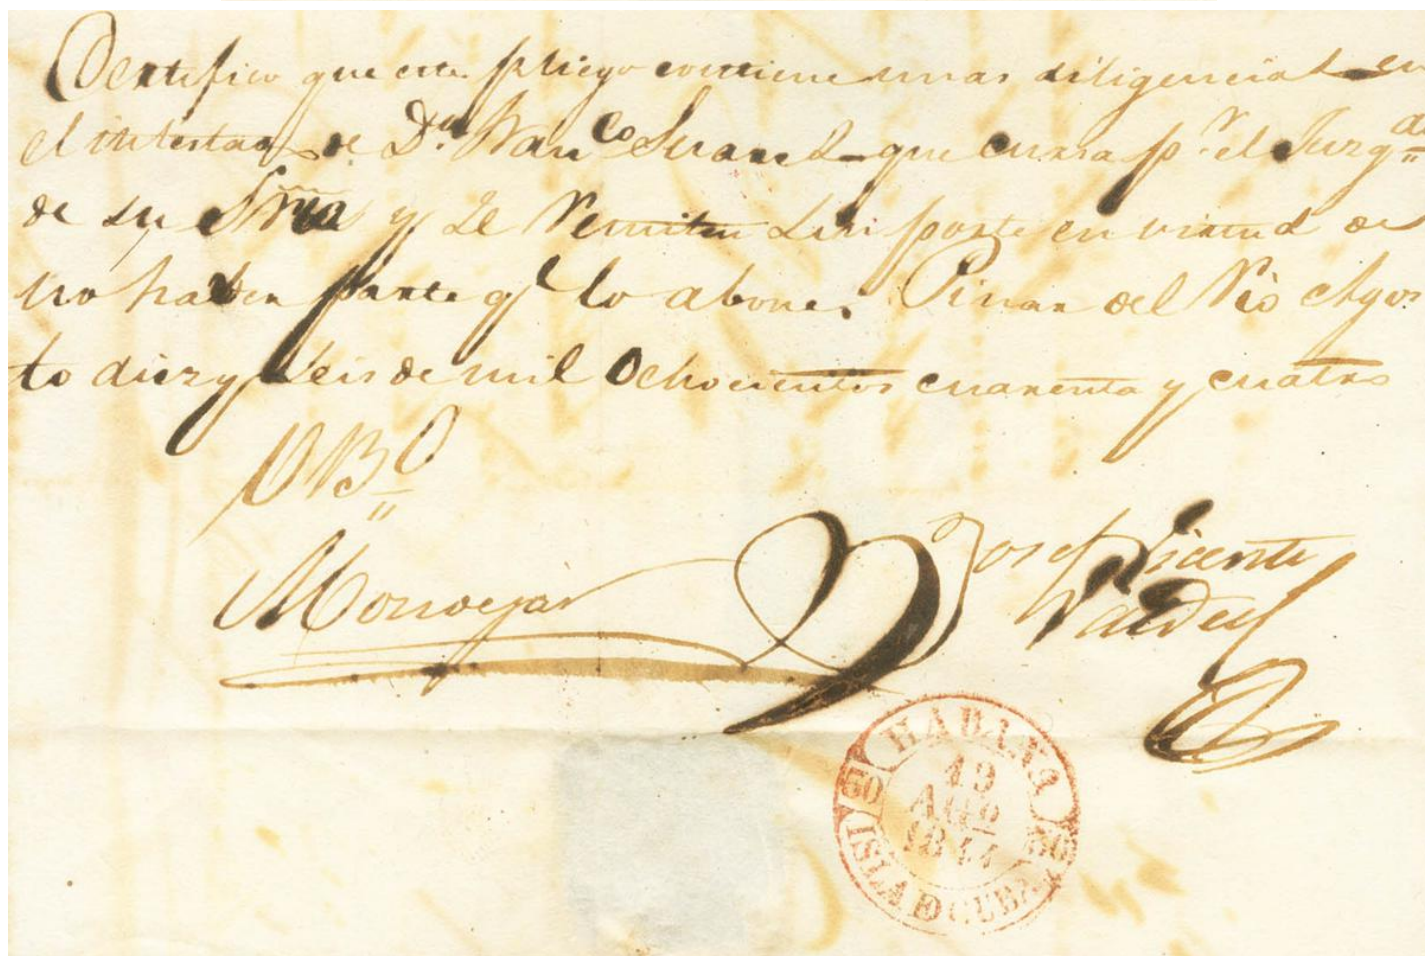 Certifico que este pliego contiene unas diligencias en
el intestado de Dn. Franco Suarez que cursa pr. el Juzgdo
de su Sria y se remiten sin porte en virtud de
no haber parte qe lo abone. Pinar del Rio Agos
to diez y seis de mil Ochocientos cuarenta y cuatro
VBO
Josef Vicente
Valdes
HABANA
19
AGO
1844
ISLA DE CUBA